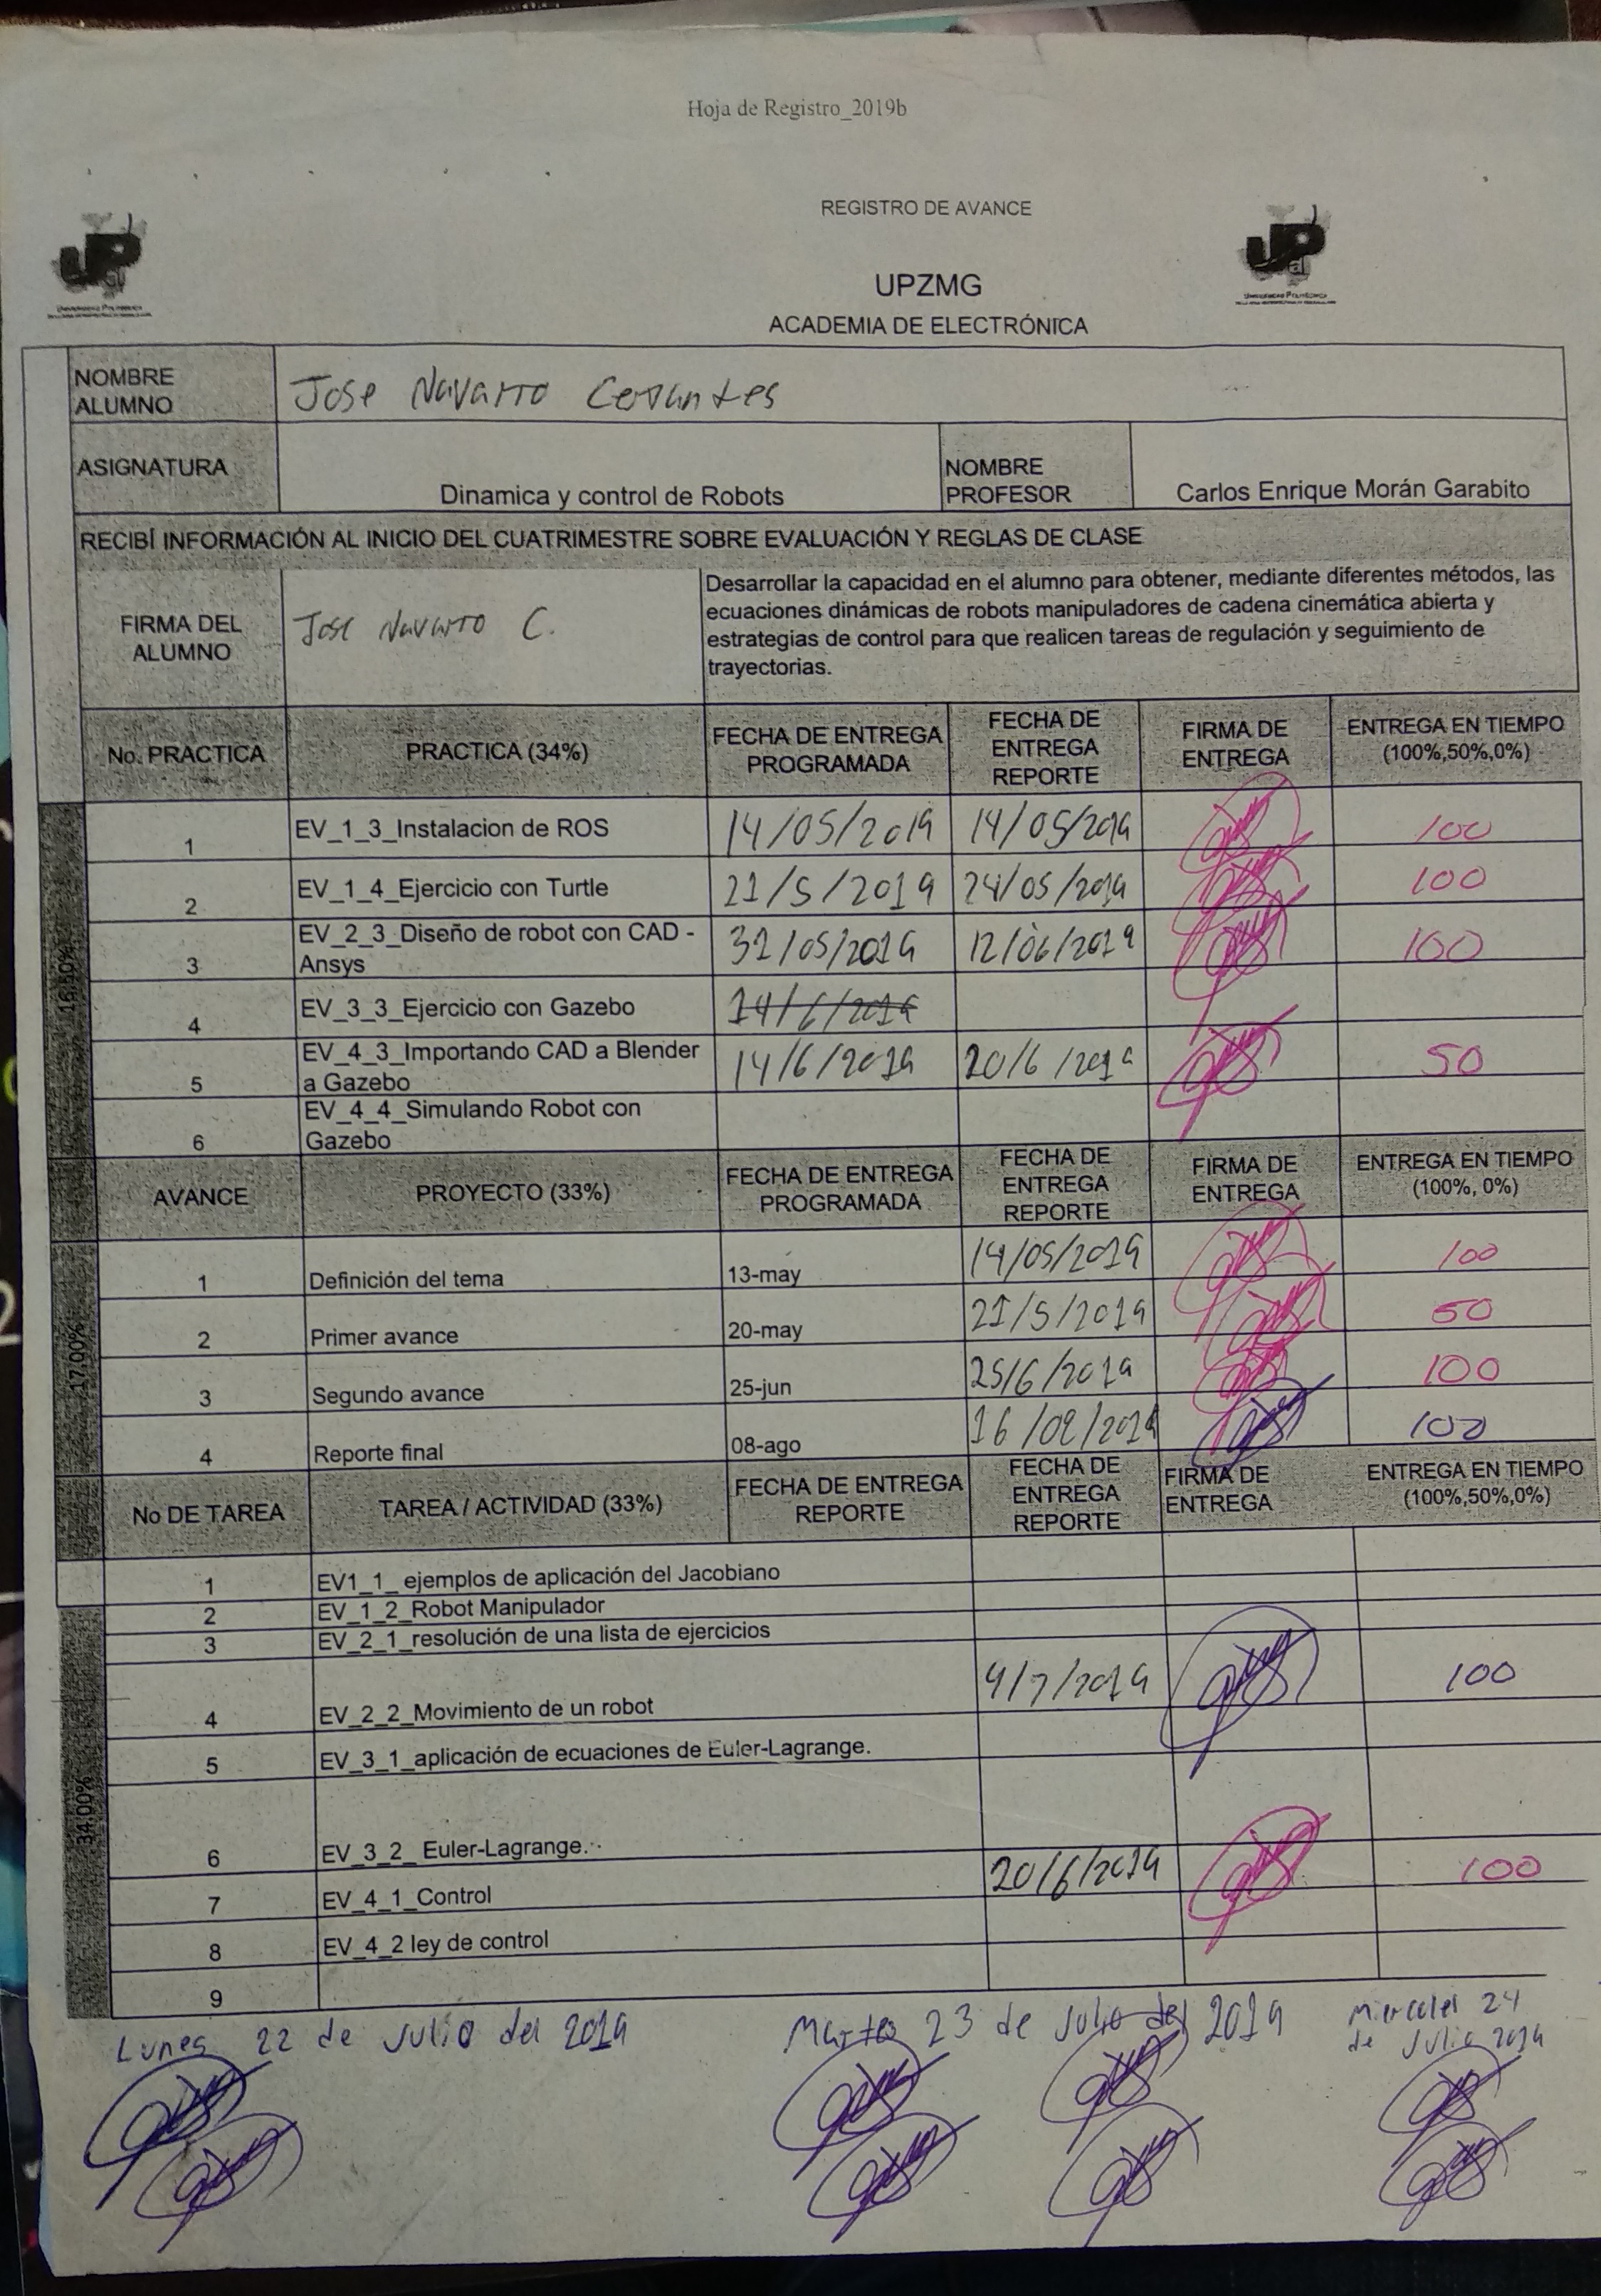 Hoja de Registro_2019b
REGISTRO DE AVANCE
UPZMG
ACADEMIA DE ELECTRÓNICA
NOMBRE ALUMNO Jose Navarro Cervantes
ASIGNATURA Dinamica y control de Robots NOMBRE PROFESOR Carlos Enrique Morán Garabito
RECIBÍ INFORMACIÓN AL INICIO DEL CUATRIMESTRE SOBRE EVALUACIÓN Y REGLAS DE CLASE
FIRMA DEL ALUMNO Jose Navarro C.
Desarrollar la capacidad en el alumno para obtener, mediante diferentes métodos, las
ecuaciones dinámicas de robots manipuladores de cadena cinemática abierta y
estrategias de control para que realicen tareas de regulación y seguimiento de
trayectorias.
No. PRACTICA PRACTICA (34%) FECHA DE ENTREGA PROGRAMADA FECHA DE ENTREGA REPORTE FIRMA DE ENTREGA ENTREGA EN TIEMPO (100%,50%,0%)
16.50%
1 EV_1_3_Instalacion de ROS 14/05/2019 14/05/2019 100
2 EV_1_4_Ejercicio con Turtle 21/5/2019 24/05/2019 100
3 EV_2_3_Diseño de robot con CAD - Ansys 31/05/2019 12/06/2019 100
4 EV_3_3_Ejercicio con Gazebo 14/6/2019
5 EV_4_3_Importando CAD a Blender a Gazebo 14/6/2019 20/6/2019 50
6 EV_4_4_Simulando Robot con Gazebo
AVANCE PROYECTO (33%) FECHA DE ENTREGA PROGRAMADA FECHA DE ENTREGA REPORTE FIRMA DE ENTREGA ENTREGA EN TIEMPO (100%, 0%)
17.00%
1 Definición del tema 13-may 14/05/2019 100
2 Primer avance 20-may 21/5/2019 50
3 Segundo avance 25-jun 25/6/2019 100
4 Reporte final 08-ago 100
No DE TAREA TAREA / ACTIVIDAD (33%) FECHA DE ENTREGA REPORTE FECHA DE ENTREGA REPORTE FIRMA DE ENTREGA ENTREGA EN TIEMPO (100%,50%,0%)
34.00%
1 EV1_1_ ejemplos de aplicación del Jacobiano
2 EV_1_2_Robot Manipulador
3 EV_2_1_resolución de una lista de ejercicios
4 EV_2_2_Movimiento de un robot 9/7/2019 100
5 EV_3_1_aplicación de ecuaciones de Euler-Lagrange.
6 EV_3_2_ Euler-Lagrange.
7 EV_4_1_Control 20/6/2019 100
8 EV_4_2 ley de control
9
Lunes 22 de Julio del 2019
Martes 23 de Julio del 2019
Miercoles 24
de Julio 2019